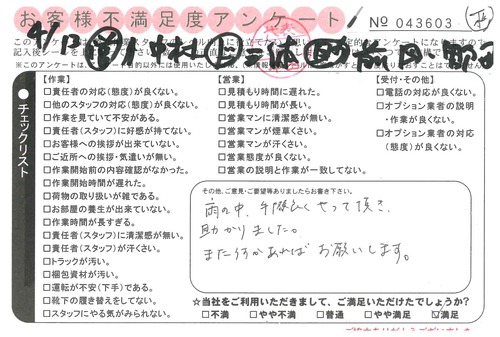 お客様不満足度アンケート
No 043603
チェックリスト
【作業】
□責任者の対応(態度)が良くない。
□他のスタッフの対応(態度)が良くない。
□作業を見ていて不安がある。
□責任者(スタッフ)に好感が持てない。
□お客様への挨拶が出来ていない。
□ご近所への挨拶・気遣いが無い。
□作業開始前の内容確認がなかった。
□作業開始時間が遅れた。
□荷物の取り扱いが雑である。
□お部屋の養生が出来ていない。
□作業時間が長すぎる。
□責任者(スタッフ)に清潔感が無い。
□責任者(スタッフ)が汗くさい。
□トラックが汚い。
□梱包資材が汚い。
□運転が不安(下手)である。
□靴下の履き替えをしてない。
□スタッフにやる気がみられない。
【営業】
□見積もり時間に遅れた。
□見積もり時間が長い。
□営業マンに清潔感が無い。
□営業マンが煙草くさい。
□営業マンが汗くさい。
□営業態度が良くない。
□営業の説明と作業が一致してない。
【受付・その他】
□電話の対応が良くない。
□オプション業者の説明
・作業が良くない。
□オプション業者の対応
(態度)が良くない。
その他、ご意見・ご要望等ありましたらお書き下さい。
雨の中、手際良くやって頂き、
助かりました。
また何かあれば お願いします。
☆当社をご利用いただきまして、ご満足いただけたでしょうか?
□不満 □やや不満 □普通 □やや満足 ☑満足